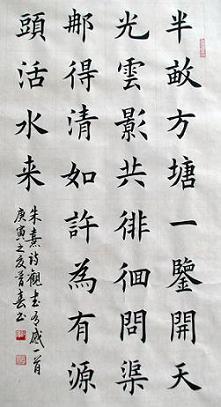 半畝方塘一鑒開天
光雲影共徘徊問渠
那得清如許為有源
頭活水来
朱熹詩觀書有感一首
庚寅之